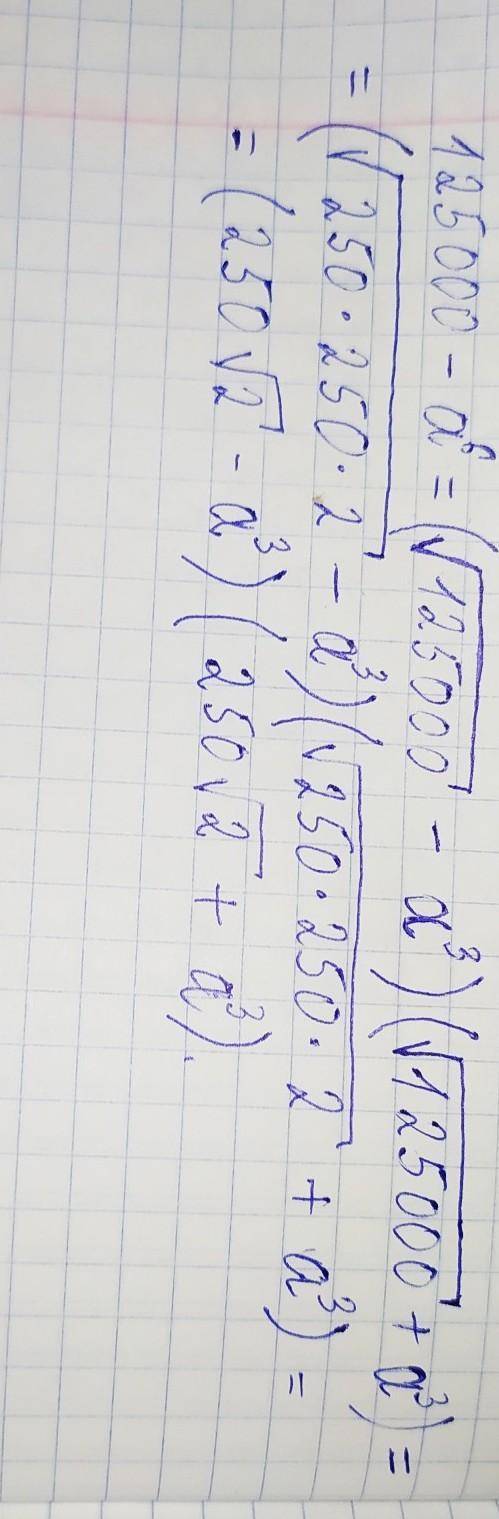 125000 - a⁶ = (√125000 - a³)(√125000 + a³) =
= (√250·250·2 - a³)(√250·250·2 + a³) =
= (250√2 - a³)(250√2 + a³).